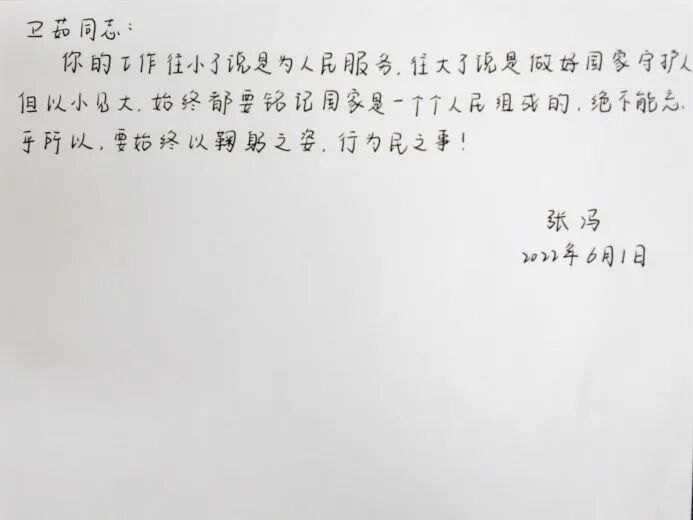 卫茹同志：
你的工作往小了说是为人民服务，往大了说是做好国家守护人
但以小见大，始终都要铭记国家是一个个人民组成的，绝不能忘
乎所以，要始终以鞠躬之姿，行为民之事！
张冯
2022年6月1日